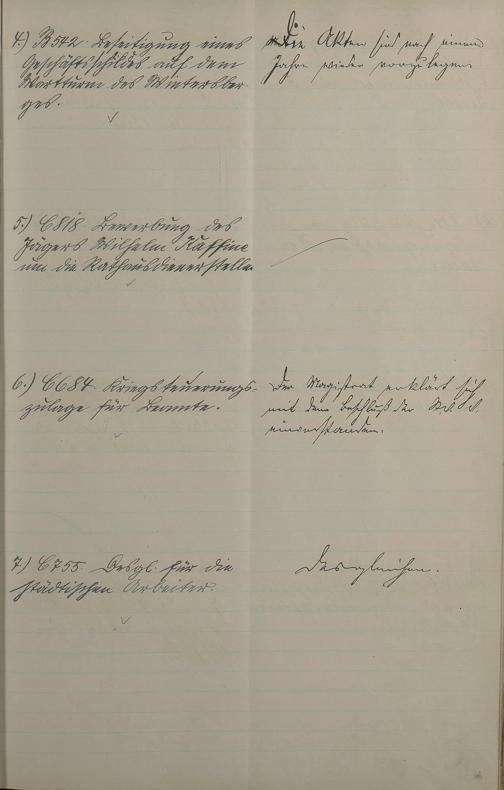 4.) B 542. Beseitigung eines
Geschäftsschildes auf dem
Wartturm des Wintersber-
ges.
Die Akten sind nach einem
Jahre wieder vorzulegen.
5.) C 818 Bewerbung des
Jägers Wilhelm
um die Rathausdienerstelle
6.) C 684. Kriegsteuerungs-
zulage für Beamte.
Der Magistrat erklärt sich
mit dem Beschluß der St. V. V.
einverstanden.
7.) C 755 Desgl. für die
städtischen Arbeiter.
Desgleichen.